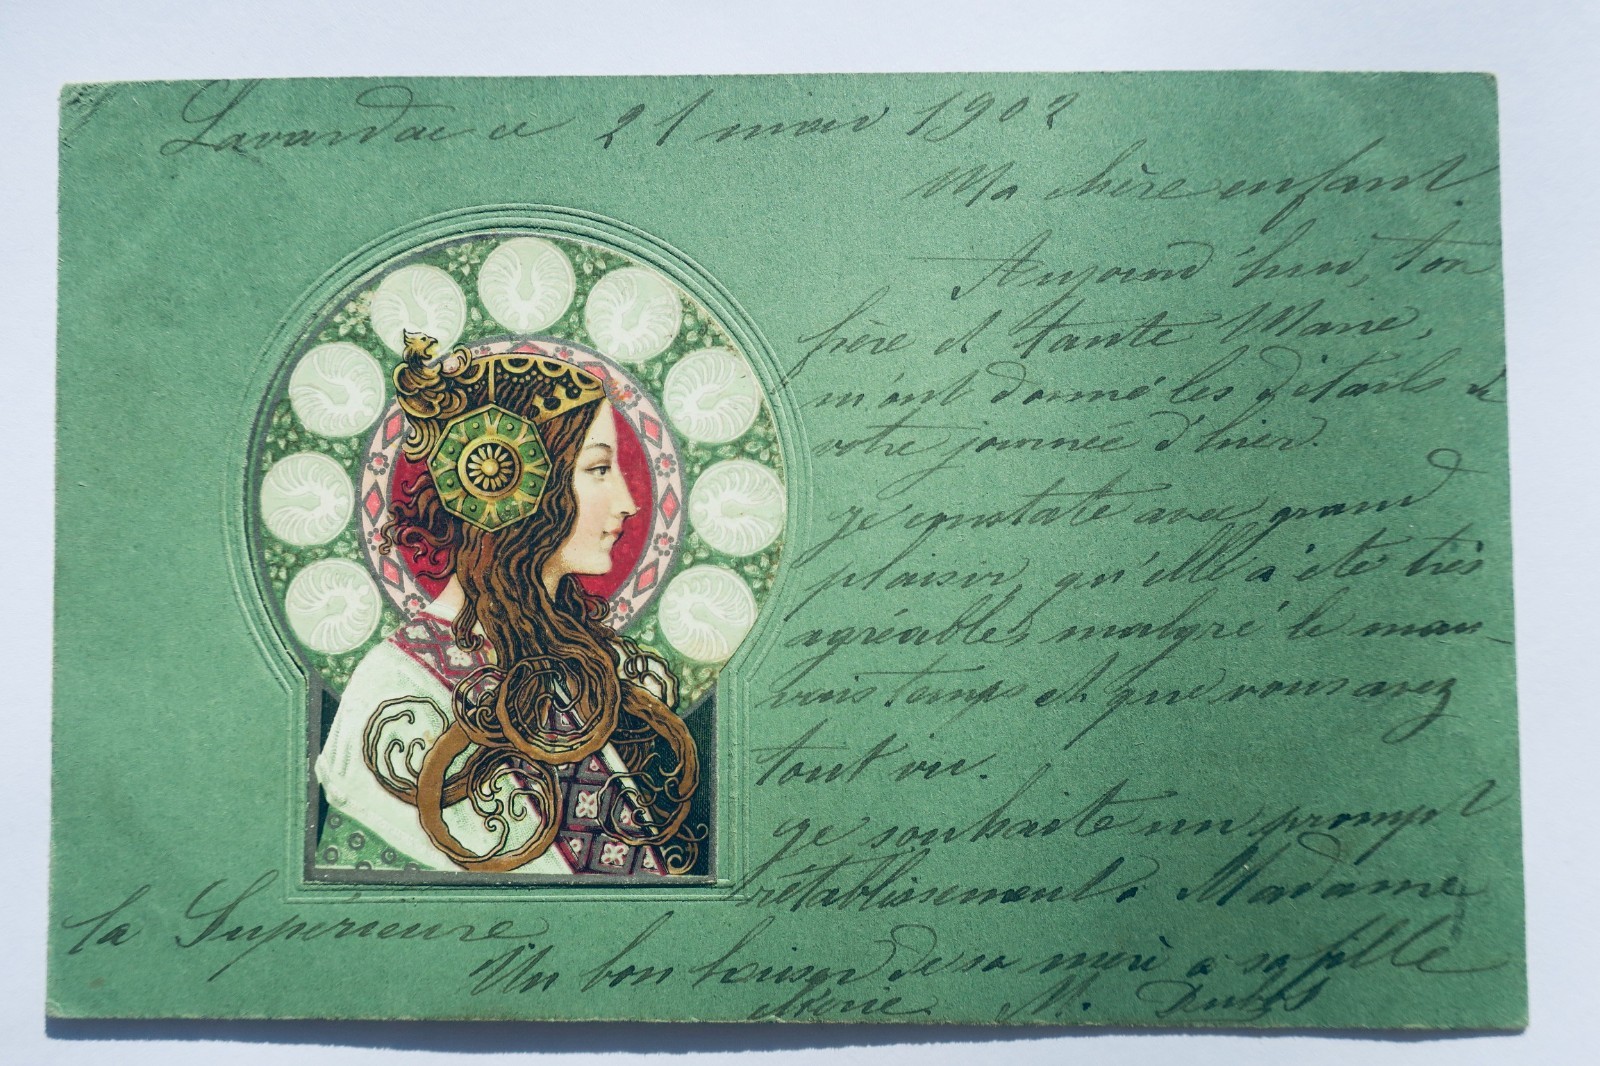 Lavardac ce 21 mai 1902
Ma chère enfant.
Aujourd'hui, ton
frère et tante Marie,
m'ont donné les détails de
votre journée d'hier.
je constate avec grand
plaisir, qu'elle a été très
agréable, malgré le mau-
vais temps et que vous avez
tout vu.
je souhaite un prompt
rétablissement à Madame
la Supérieure
Un bon baiser de sa mère à sa fille
Marie. M.